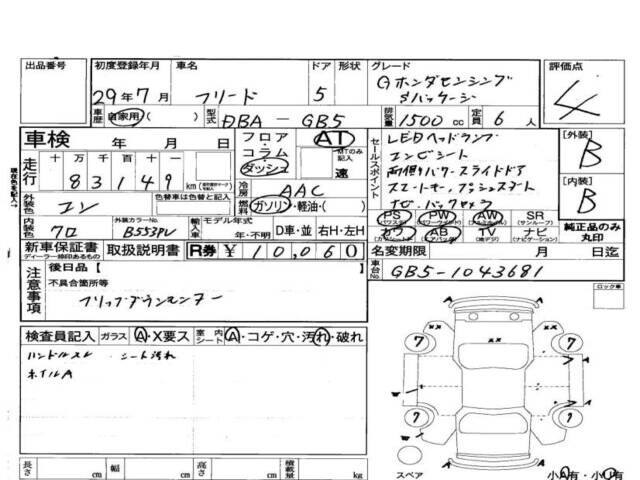 出品番号 初度登録年月 車名 ドア 形状 グレード 評価点
29年7月 フリード 5 Gホンダセンシング
Sパッケージ 4
車歴 自家用 ( ) 型式 DBA－GB5 排気量 1500cc 定員 6人
車検 年 月 日 フロア・コラム・ダッシュ AT MTのみ記入 速
セールスポイント LEDヘッドランプ
コンビシート
両側パワースライドドア
スマートキー プッシュスタート
ナビ バックカメラ
[外装] B
[内装] B
走行 十万千百十 83149 km
冷房 AAC
外装色 コン 色替車は色替と記入 燃料 ガソリン・軽油・( )
内装色 クロ 外装カラーNo. B553PV 輸入車 モデル年式 年・不明 D車・並 右H・左H
PS PW AW SR (サンルーフ)
カワ AB TV ナビ (ナビゲーション)
純正品のみ丸印
新車保証書 ディーラー捺印あるもの 取扱説明書 R券 ¥10,060
名変期限 月 日迄
車台No. GB5-1043681
注意事項 後日品[
不具合箇所等
フリップダウンモニター
ロック車
検査員記入 ガラス A・X要ス 室内シート A・コゲ・穴・汚れ・破れ
ハンドルスレ シート汚れ
ホイルA
7 7
7 7
A A
W W
長さ cm 幅 cm 高さ cm 積載量 kg
スペア 小A有・小U有